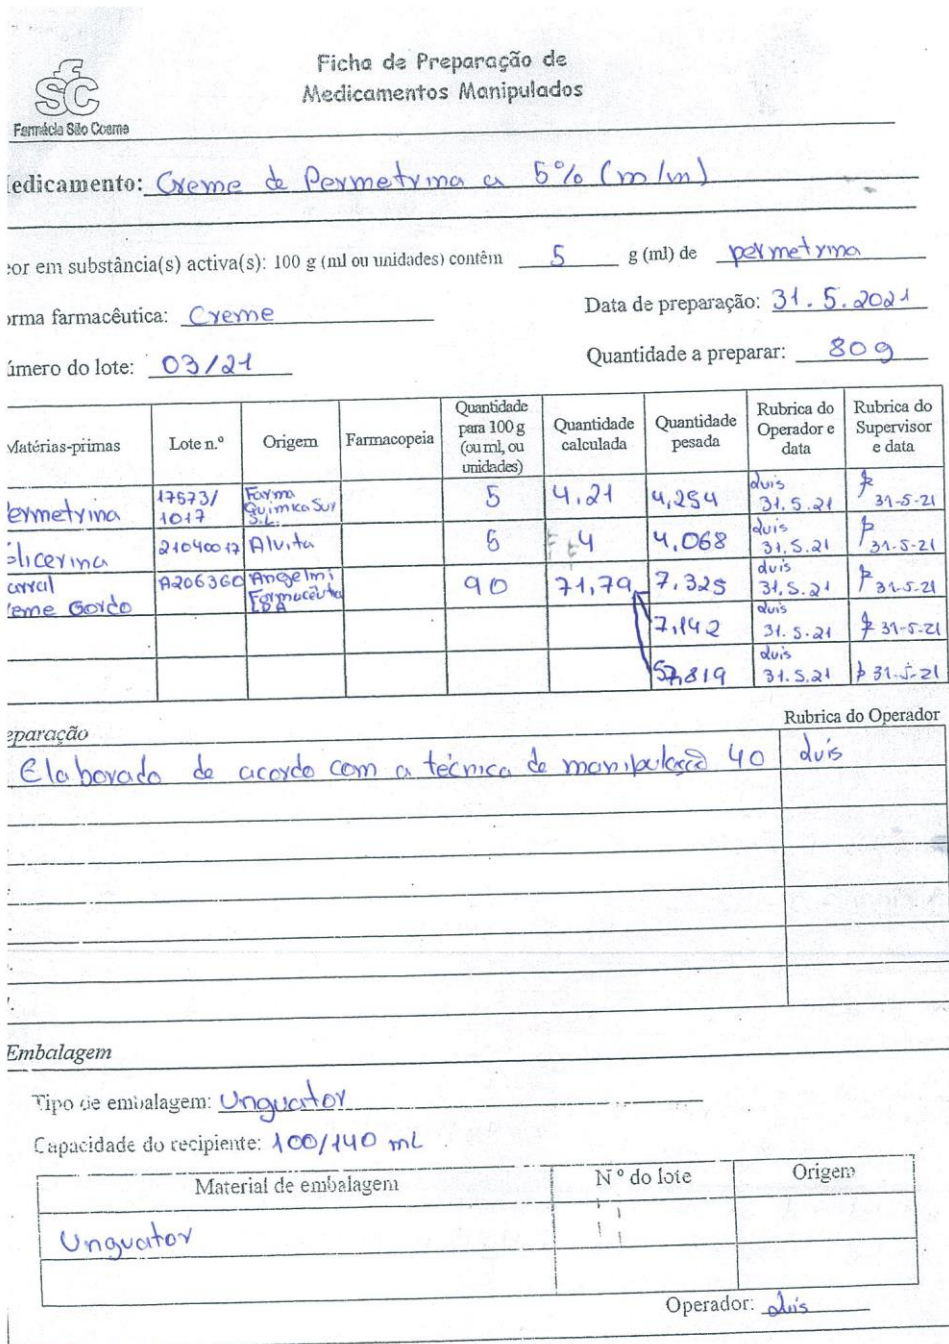 Ficha de Preparação de
Medicamentos Manipulados
SFC
Farmácia São Cosme
edicamento: Creme de Permetrina a 5% (m/m)
or em substância(s) activa(s): 100 g (ml ou unidades) contêm 5 g (ml) de permetrina
orma farmacêutica: Creme
Data de preparação: 31.5.2021
úmero do lote: 03/21
Quantidade a preparar: 80g
Matérias-primas Lote n.º Origem Farmacopeia Quantidade para 100 g (ou ml, ou unidades) Quantidade calculada Quantidade pesada Rubrica do Operador e data Rubrica do Supervisor e data
ermetrina 17573/1017 Farma Quimica Sur S.L. 5 4,21 4,254 Luis 31.5.21 31-5-21
licerina 21040017 Alvita 5 4 4,068 Luis 31.5.21 31-5-21
arral eme Gordo A206360 Angelini Farmacêutica LDA 90 71,79 7,325 Luis 31.5.21 31-5-21
7,142 Luis 31.5.21 31-5-21
57,819 Luis 31.5.21 31-5-21
eparação
Rubrica do Operador
Elaborado de acordo com a técnica de manipulação 40 Luis
Embalagem
Tipo de embalagem: Unguator
Capacidade do recipiente: 100/140 mL
Material de embalagem Nº do lote Origem
Unguator
Operador: Luis